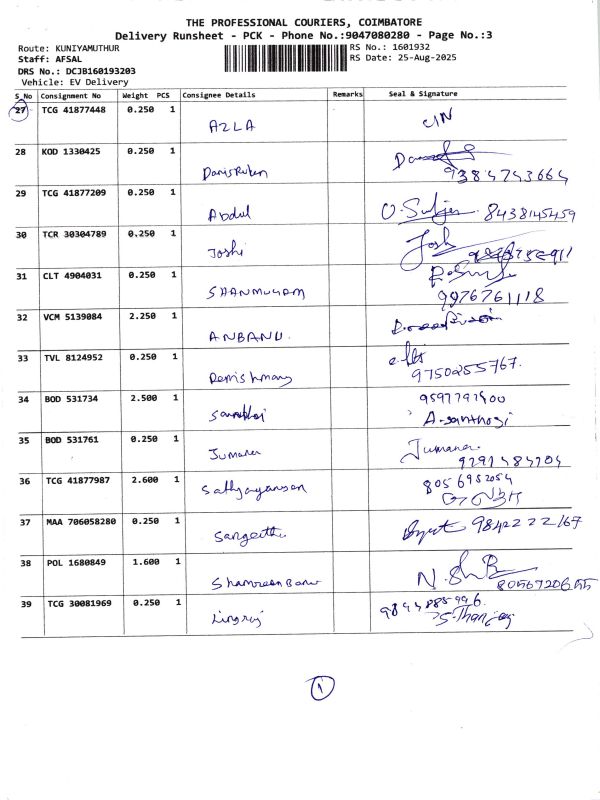 THE PROFESSIONAL COURIERS, COIMBATORE
Delivery Runsheet - PCK - Phone No.:9047080280 - Page No.:3
Route: KUNIYAMUTHUR RS No.: 1601932
Staff: AFSAL RS Date: 25-Aug-2025
DRS No.: DCJB160193203
Vehicle: EV Delivery
S_No Consignment No Weight PCS Consignee Details Remarks Seal & Signature
27 TCG 41877448 0.250 1 AZLA
28 KOD 1330425 0.250 1
9384743664
29 TCG 41877209 0.250 1 Abdul 8438145459
30 TCR 30304789 0.250 1 Joshi Josh
31 CLT 4904031 0.250 1 SHANMUGAM
9976761118
32 VCM 5139084 2.250 1 ANBANU.
33 TVL 8124952 0.250 1
9750255767.
34 BOD 531734 2.500 1
A-santhosi
35 BOD 531761 0.250 1 Jumana Jumana
36 TCG 41877987 2.600 1
8056952054
37 MAA 706058280 0.250 1 Sangeetha 9842222167
38 POL 1680849 1.600 1 N.
8056720655
39 TCG 30081969 0.250 1 Lingraj
1